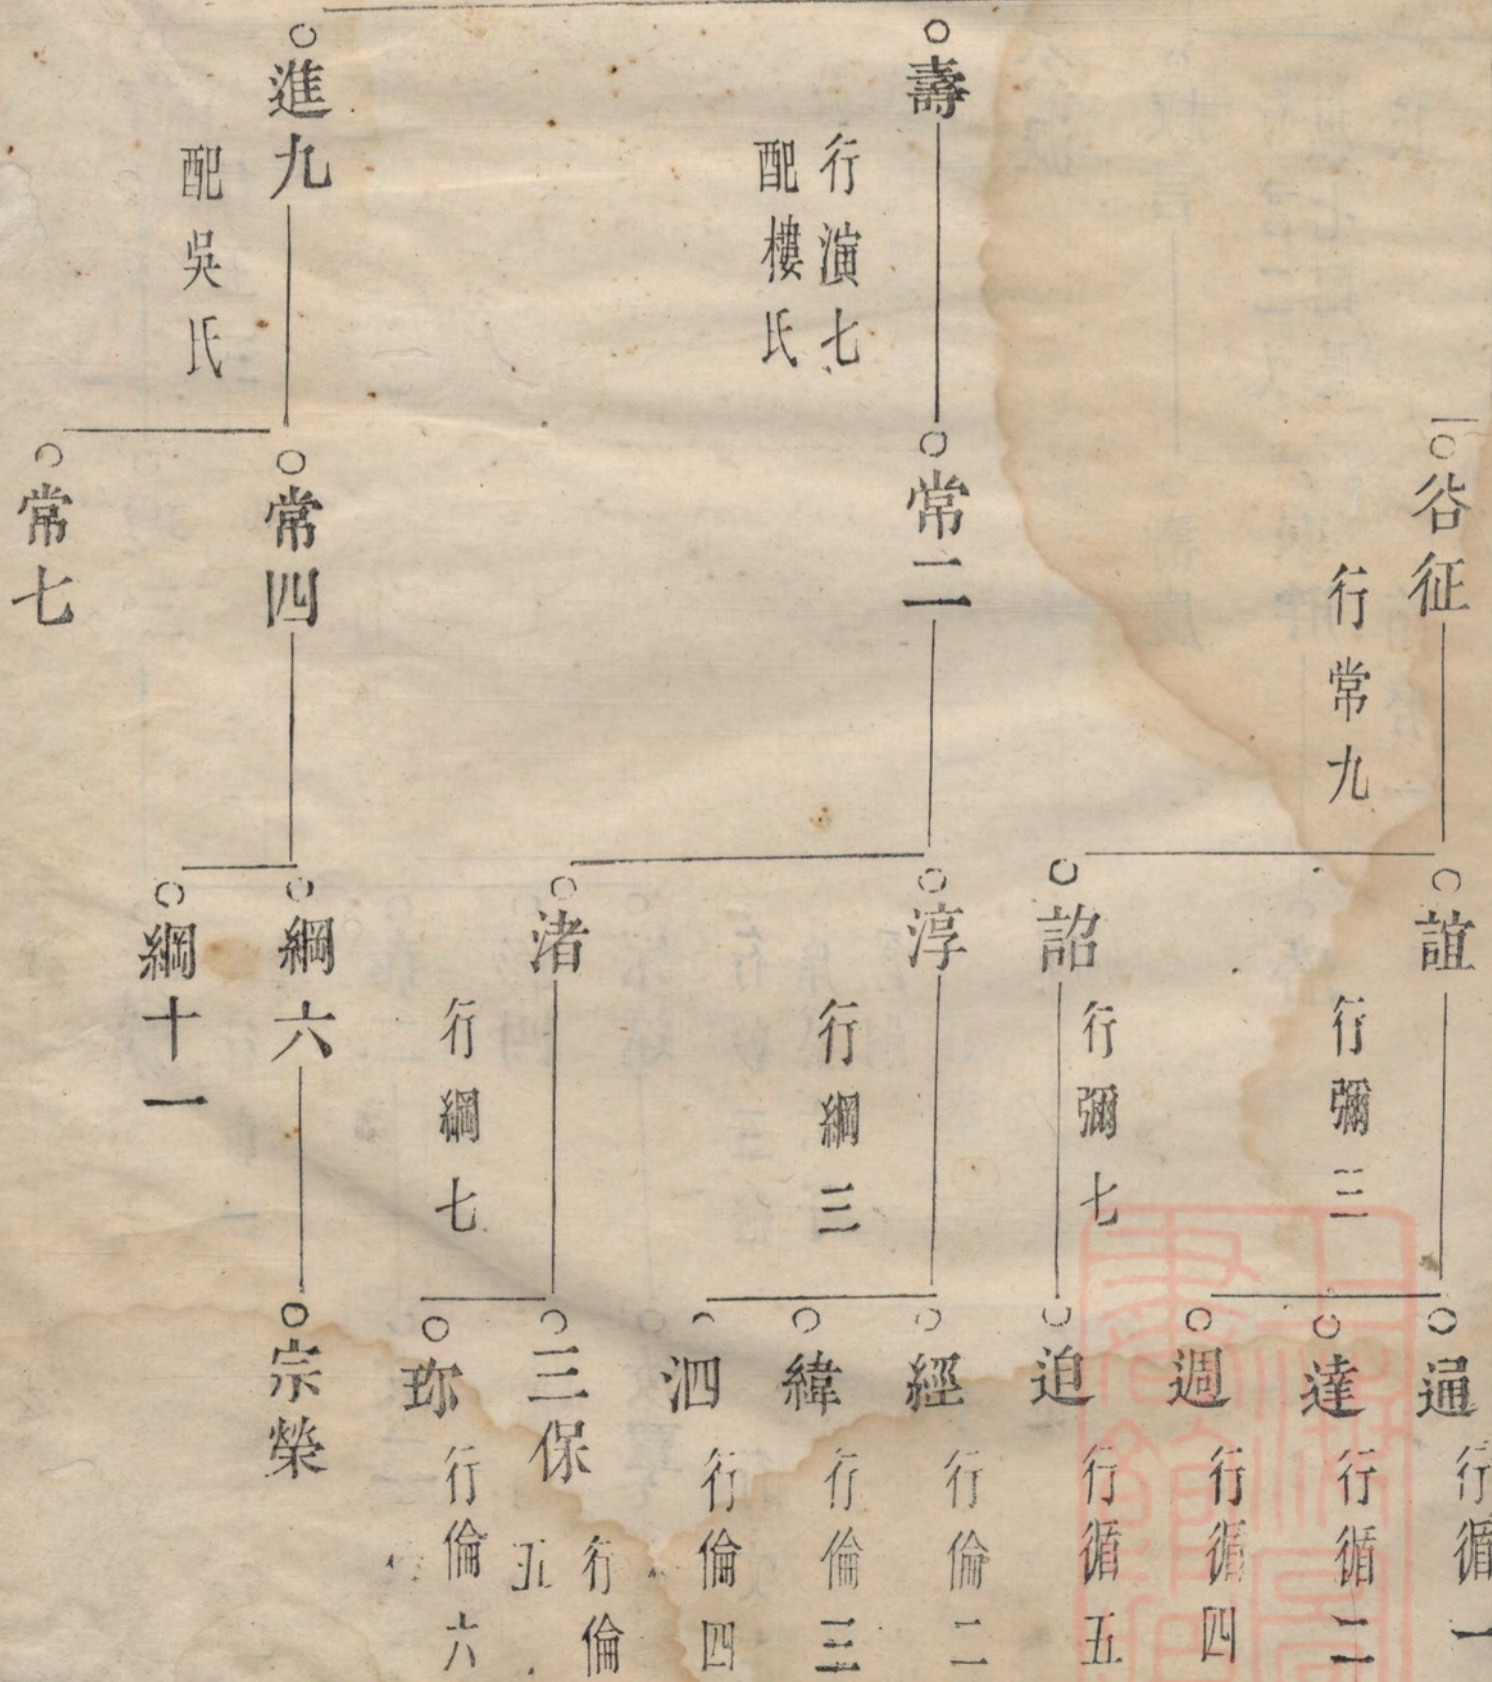 壽
行演七
配樓氏
進九
配吳氏
谷征
行常九
常二
常四
常七
誼
行彌三
詔
行彌七
淳
行綱三
渚
行綱七
綱六
綱十一
通
行循一
達
行循二
週
行循四
迫
行循五
經
行倫二
緯
行倫三
泗
行倫四
三保
行倫
五
珎
行倫六
宗榮